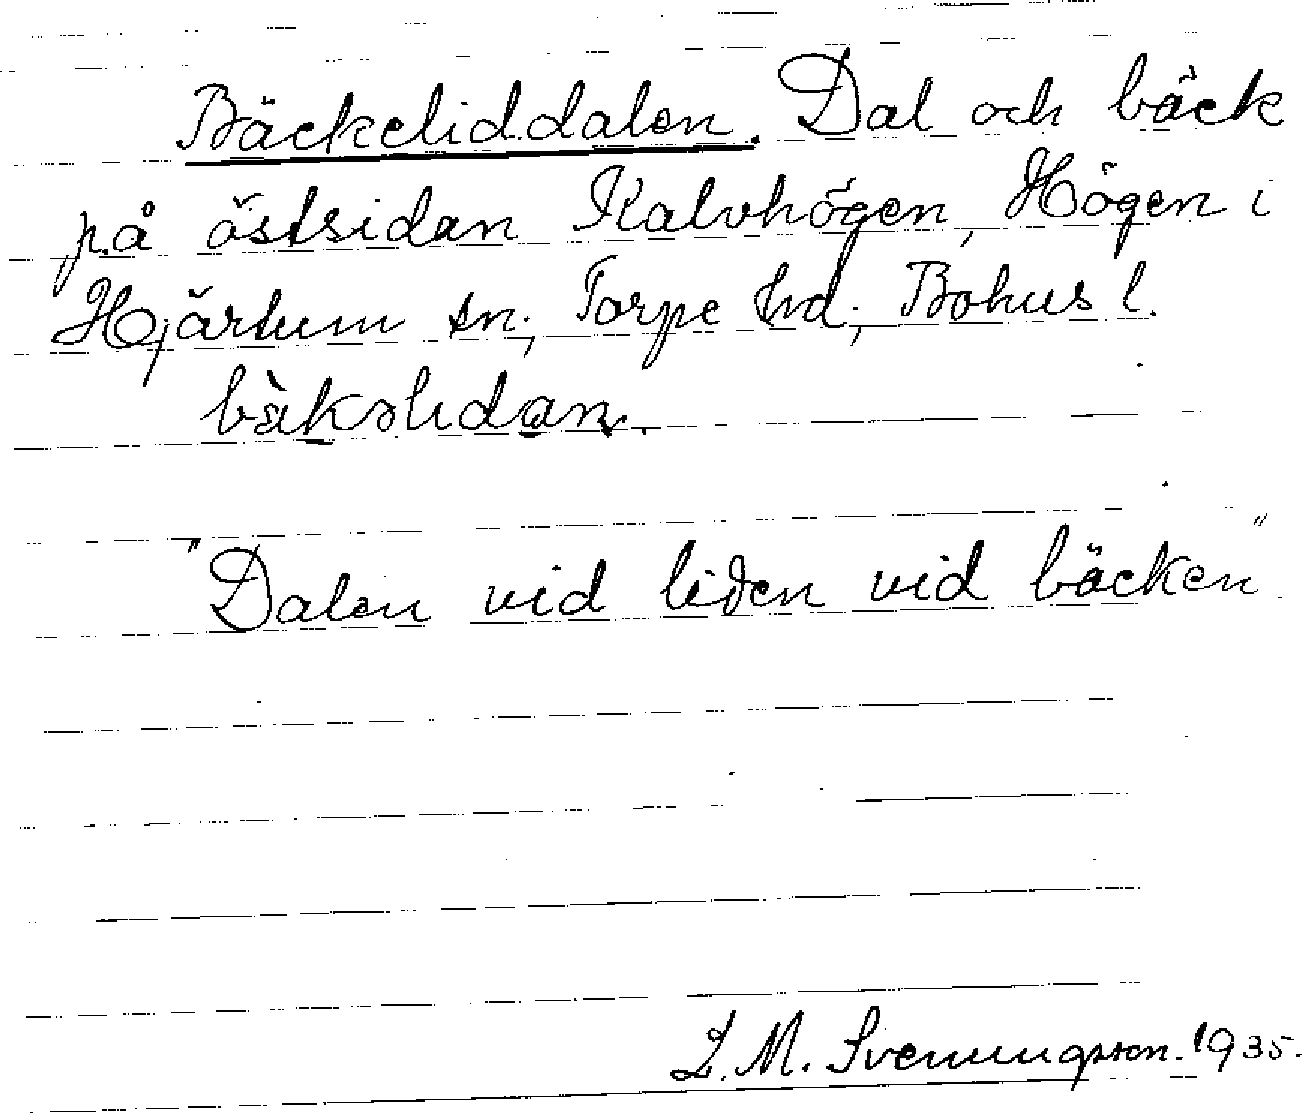 Bäckeliddalen. Dal och bäck
på östsidan Kalvhögen, Högen i
Hjärtum sn; Torpe hd; Bohus l.
"Dalen vid liden vid bäcken"
L. M. Svenungsson. 1935.